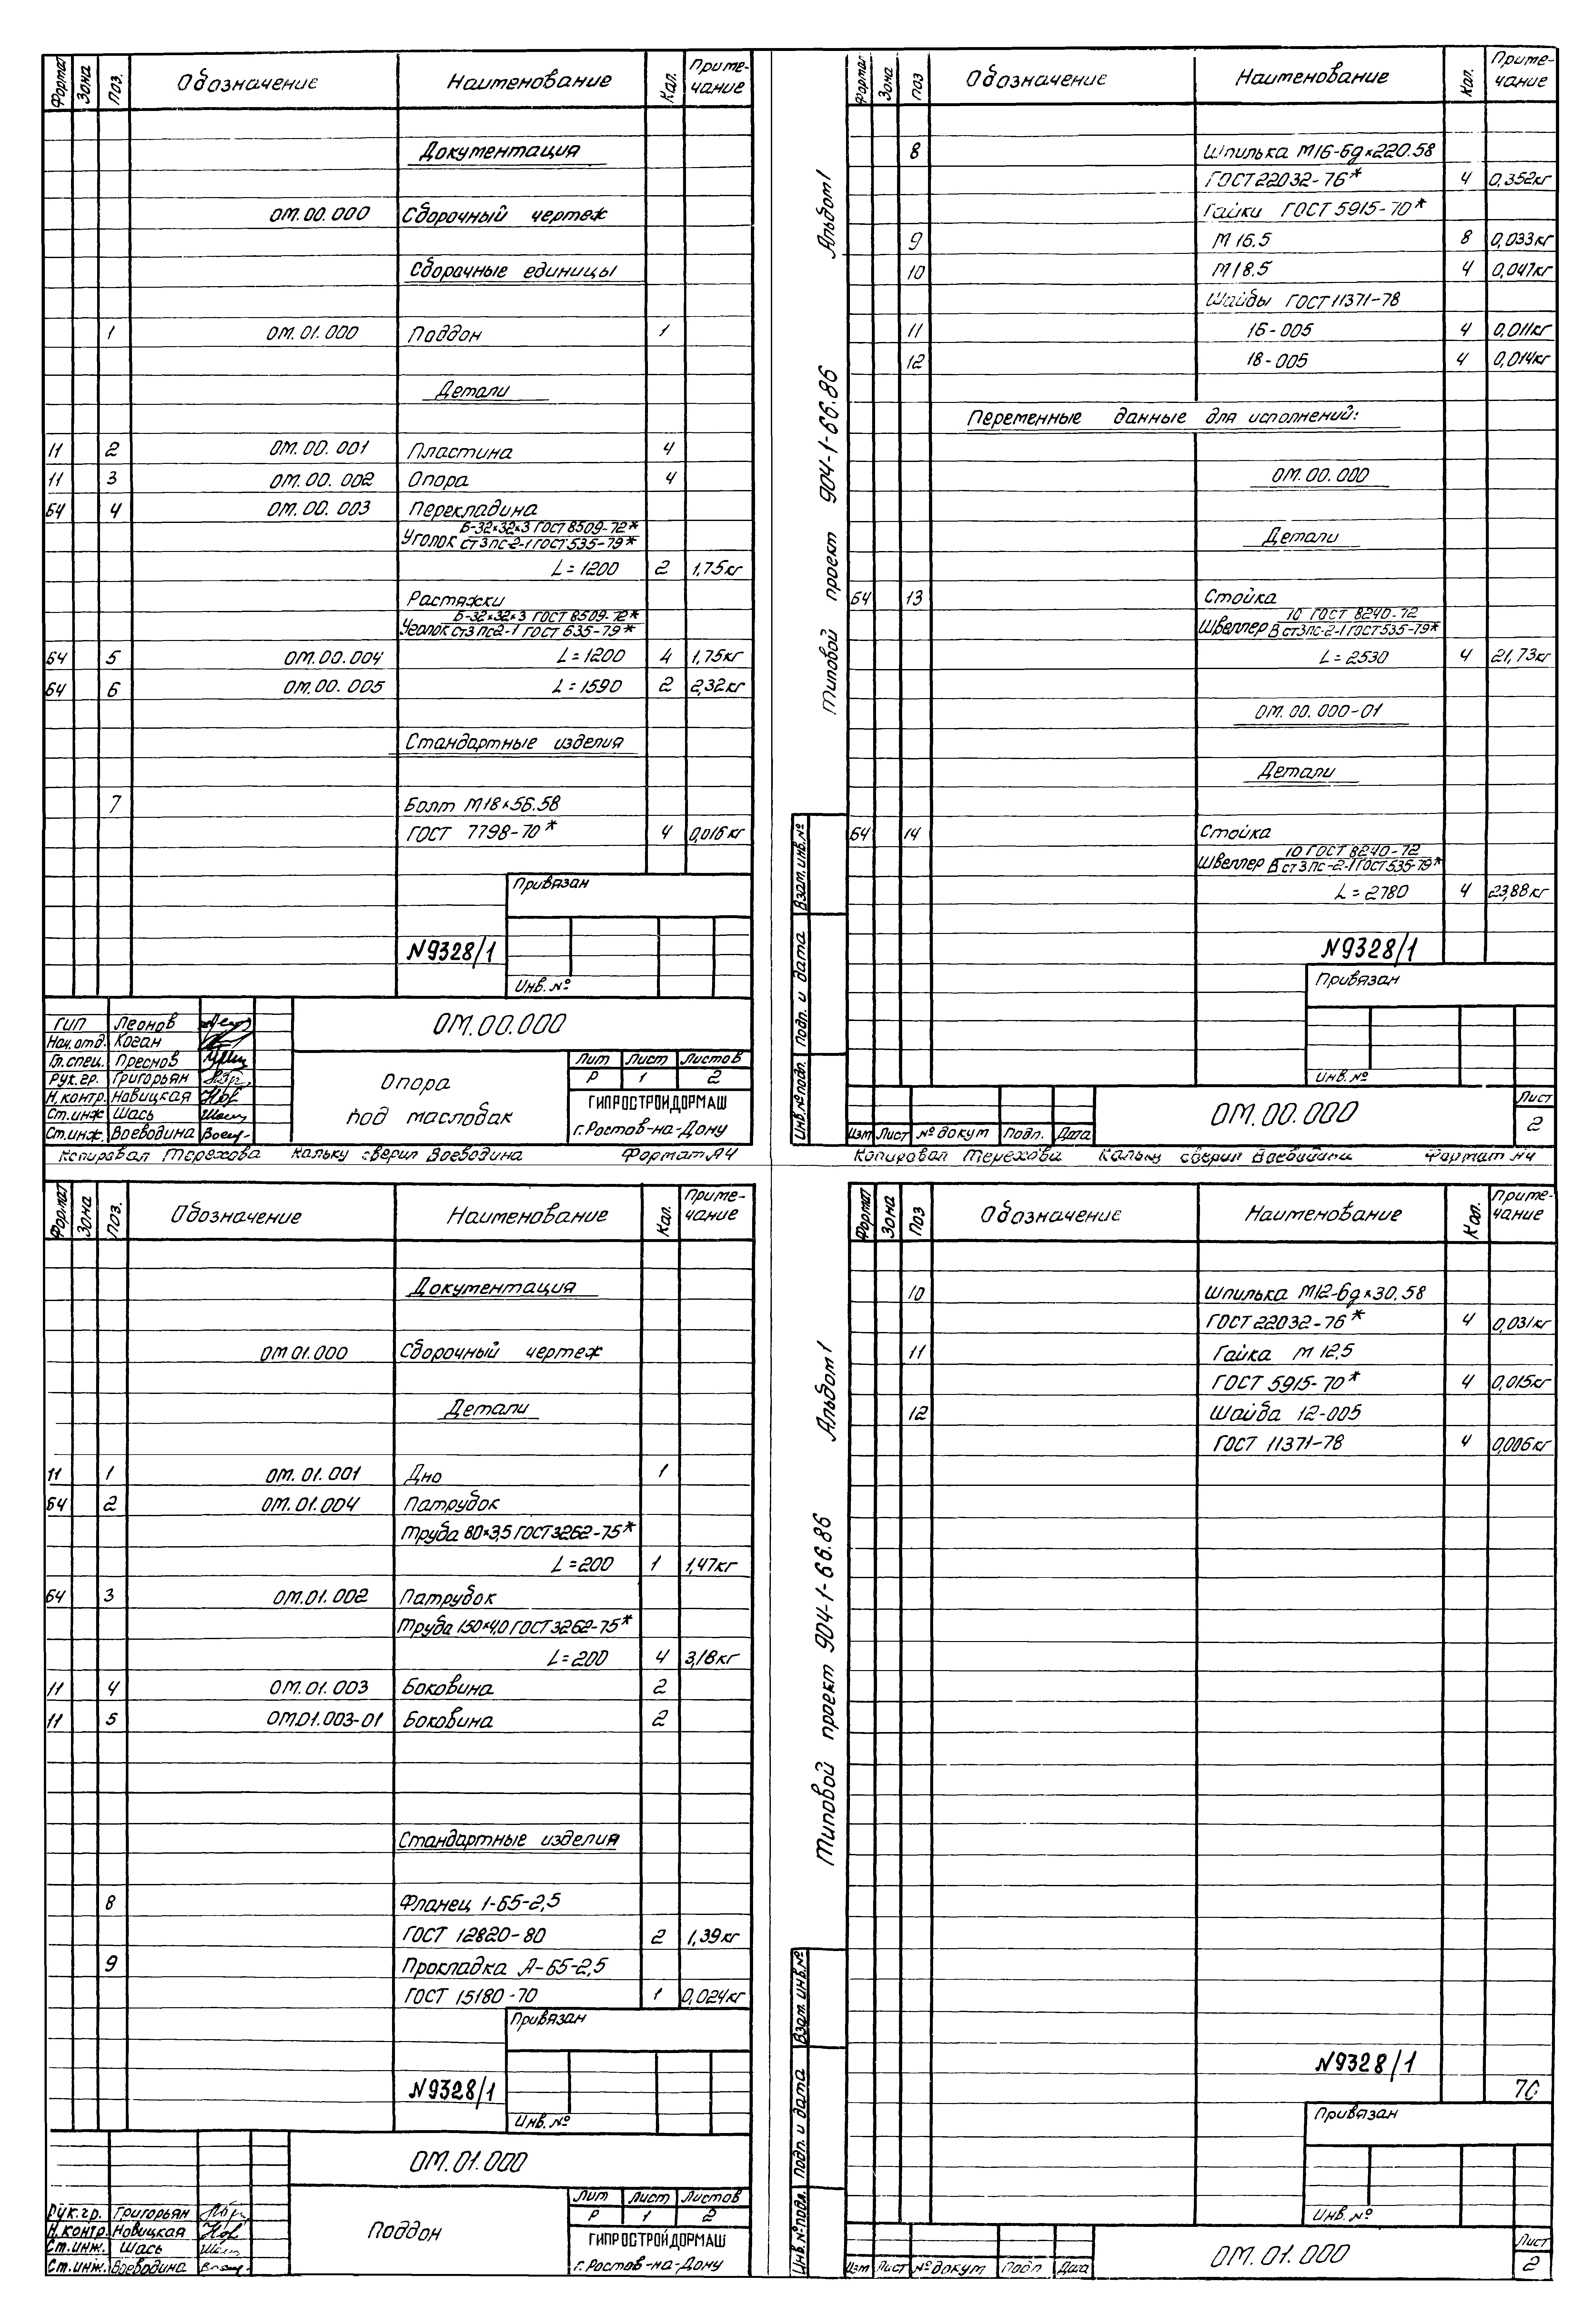 Формат Зона Поз. Обозначение Наименование Кол. Примечание
Документация
ОМ.00.000 Сборочный чертеж
Сборочные единицы
1 ОМ.01.000 Поддон 1
Детали
11 2 ОМ.00.001 Пластина 4
11 3 ОМ.00.002 Опора 4
БЧ 4 ОМ.00.003 Перекладина
Б-32×32×3 ГОСТ 8509-72*
Уголок Ст3пс-2-1 ГОСТ 535-79*
L=1200 2 1,75кг
Растяжки
Б-32×32×3 ГОСТ 8509-72*
Уголок Ст3пс2-1 ГОСТ 535-79*
БЧ 5 ОМ.00.004 L=1200 4 1,75кг
БЧ 6 ОМ.00.005 L=1590 2 2,32кг
Стандартные изделия
7 Болт М18×56.58
ГОСТ 7798-70* 4 0,016кг
Привязан
N9328/1
Инв.№
ГИП Леонов
Нач.отд. Коган
Гл.спец. Преснов
Рук.гр. Григорьян
Н.контр. Новицкая
Ст.инж Шась
Ст.инж. Воеводина
ОМ.00.000
Опора
под маслобак
Лит Лист Листов
Р 1 2
ГИПРОСТРОЙДОРМАШ
г.Ростов-на-Дону
Копировал Терехова Кальку сверил Воеводина Формат А4
Альбом 1
Типовой проект 904-1-66.86
Формат Зона Поз Обозначение Наименование Кол. Примечание
8 Шпилька М16-6g×220.58
ГОСТ 22032-76* 4 0,352кг
Гайки ГОСТ 5915-70*
9 М16.5 8 0,033кг
10 М18.5 4 0,047кг
Шайбы ГОСТ 11371-78
11 16-005 4 0,011кг
12 18-005 4 0,014кг
Переменные данные для исполнений:
ОМ.00.000
Детали
БЧ 13 Стойка
10 ГОСТ 8240-72
Швеллер В ст3пс-2-1 ГОСТ 535-79*
L=2530 4 21,73кг
ОМ.00.000-01
Детали
БЧ 14 Стойка
10 ГОСТ 8240-72
Швеллер В ст3пс-2-1 ГОСТ 535-79*
L=2780 4 23,88кг
N9328/1
Привязан
Инв.№
Инв.№подл. Подп. и дата Взам.инв.№
Изм Лист № докум Подп. Дата
ОМ.00.000
Лист
2
Копировал Терехова Кальку сверил Формат А4
Формат Зона Поз. Обозначение Наименование Кол. Примечание
Документация
ОМ 01.000 Сборочный чертеж
Детали
11 1 ОМ.01.001 Дно 1
БЧ 2 ОМ.01.004 Патрубок
Труба 80×3,5 ГОСТ 3262-75*
L=200 1 1,47кг
БЧ 3 ОМ.01.002 Патрубок
Труба 150×4,0 ГОСТ 3262-75*
L=200 4 3,18кг
11 4 ОМ.01.003 Боковина 2
11 5 ОМ.01.003-01 Боковина 2
Стандартные изделия
8 Фланец 1-65-2,5
ГОСТ 12820-80 2 1,39кг
9 Прокладка А-65-2,5
ГОСТ 15180-70 1 0,024кг
Привязан
N9328/1
Инв.№
Рук.гр. Григорьян
Н.контр. Новицкая
Ст.инж. Шась
Ст.инж. Воеводина
ОМ.01.000
Поддон
Лит Лист Листов
Р 1 2
ГИПРОСТРОЙДОРМАШ
г.Ростов-на-Дону
Альбом 1
Типовой проект 904-1-66.86
Формат Зона Поз Обозначение Наименование Кол. Примечание
10 Шпилька М12-6g×30.58
ГОСТ 22032-76* 4 0,031кг
11 Гайка М12,5
ГОСТ 5915-70* 4 0,015кг
12 Шайба 12-005
ГОСТ 11371-78 4 0,006кг
N9328/1
Привязан
Инв.№
Инв.№подл. Подп. и дата Взам.инв.№
Изм Лист № докум Подп Дата
ОМ.01.000
Лист
2